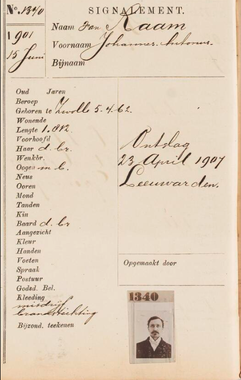 No. 1340
SIGNALEMENT.
1901
15 Juni
Naam van Raam
Voornaam Johannes Antonius
Bijnaam
Oud Jaren
Beroep
Geboren te Zwolle 5.4.62
Wonende
Lengte 1.812
Voorhoofd
Haar d. br.
Wenkbr.
Oogen
Neus
Ooren
Mond
Tanden
Kin
Baard d. br
Aangezicht
Kleur
Handen
Voeten
Spraak
Postuur
Godsd. Bel.
Kleeding
misdrijf
brandstichting
Bijzond. teekenen
Ontslag
23 April 1907
Leeuwarden.
Opgemaakt door
1340